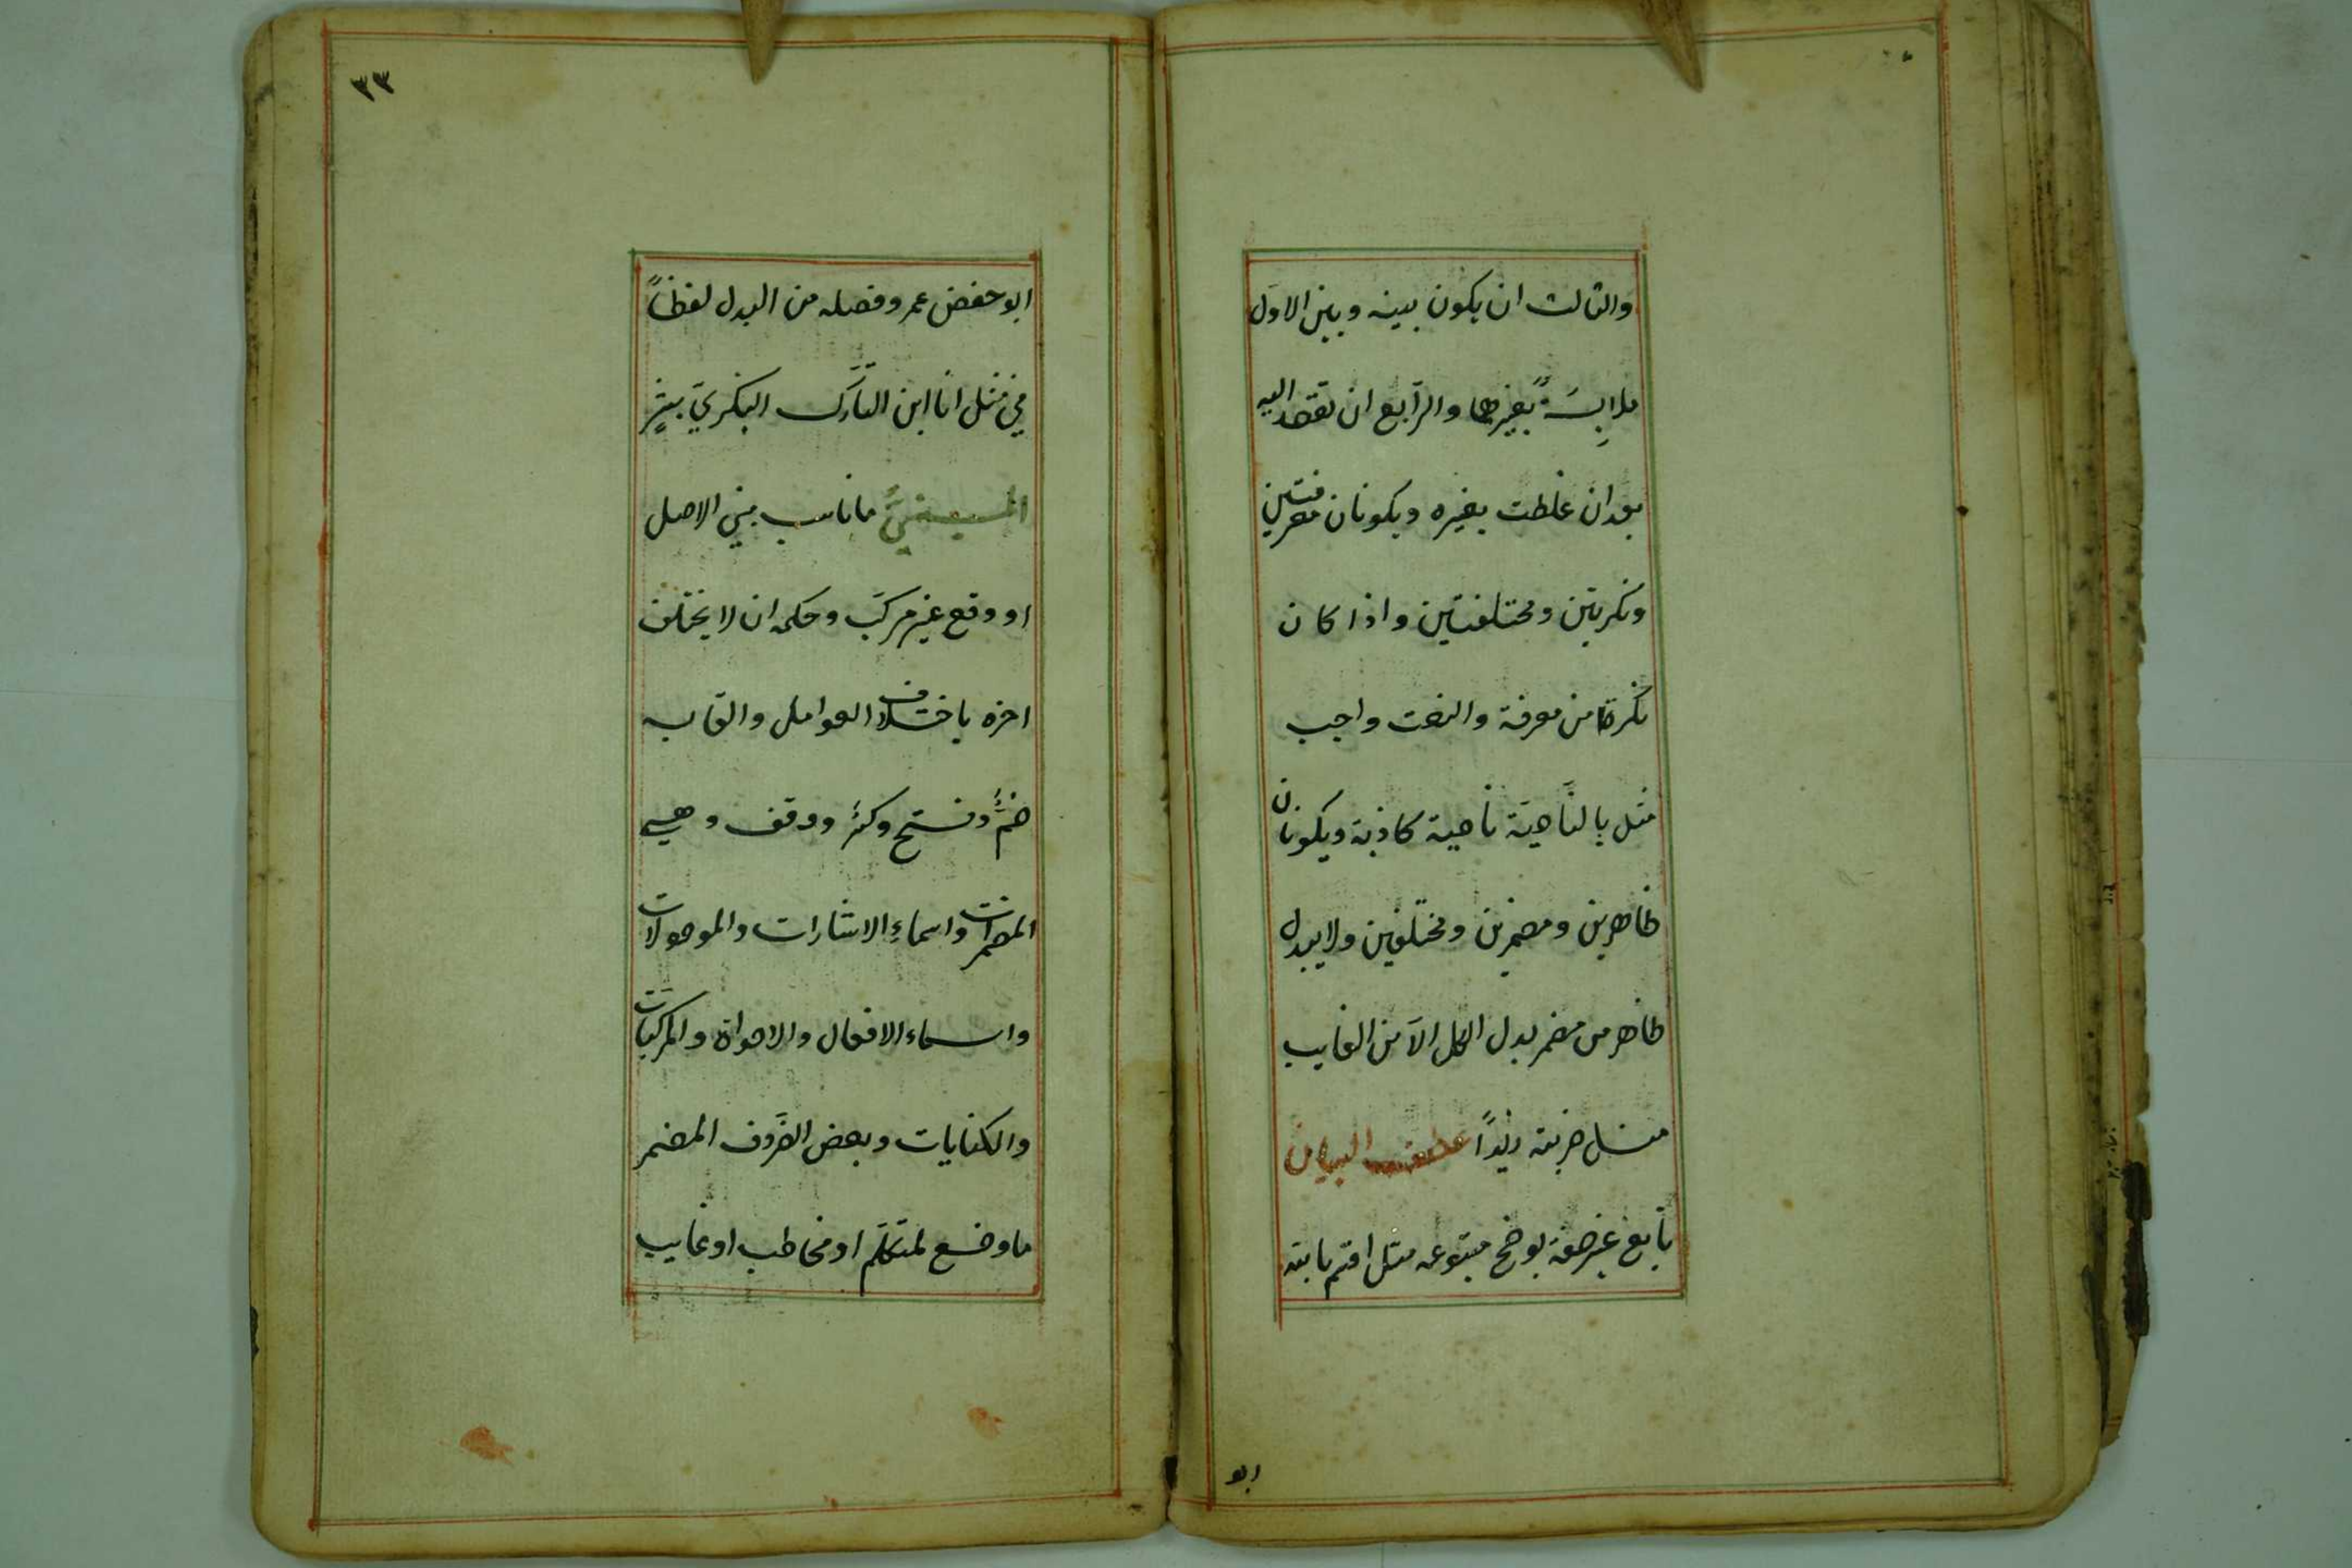 والثالث ان يكون بينه وبين الاوّل
ملابِسَةٌ بغيرها والرّابع ان تقصد اليه
بعد ان غلطت بغيره ويكونان معرفتين
ونكرتين ومختلفتين واذا كان
نكرة من معرفة والنعت واجب
مثل بالنّاصية ناصية كاذبة ويكونان
ظاهرين ومضمرين ومختلفين ولا يبدل
ظاهر من مضمر بدل الكل الّا من الغايب
مثل ضربته زيداً عطف البيان
تابع غير صفة يوضح متبوعه مثل اقسم بالله
ابو
٣٣
ابو حفض عمر وفصله من البدل لفظاً
في مثل انا ابن التّارك البكريّ بشرٍ
المبنيُّ ما ناسب مبني الاصل
او وقع غير مركّب وحكمه ان لا يختلف
اخره باختلاف العوامل والقابه
ضمٌّ وفتح وكسر ووقف وهي
المضمرات واسماءِ الاشارات والموصولات
واسماء الافعال والاصواة والمركّبات
والكنايات وبعض الظّروف المضمر
ما وضع لمتكلّم او مخاطب او غايب